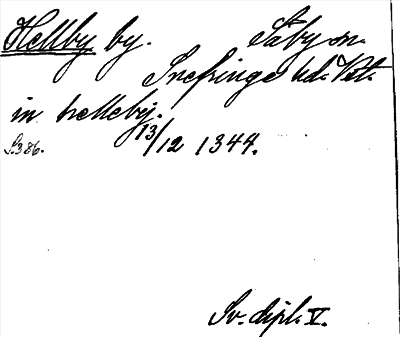 Hellby by. Säby sn.
Snefringe hd. Vstm.
in helleby.
S. 386. 13/12 1344.
Sv. dipl. V.